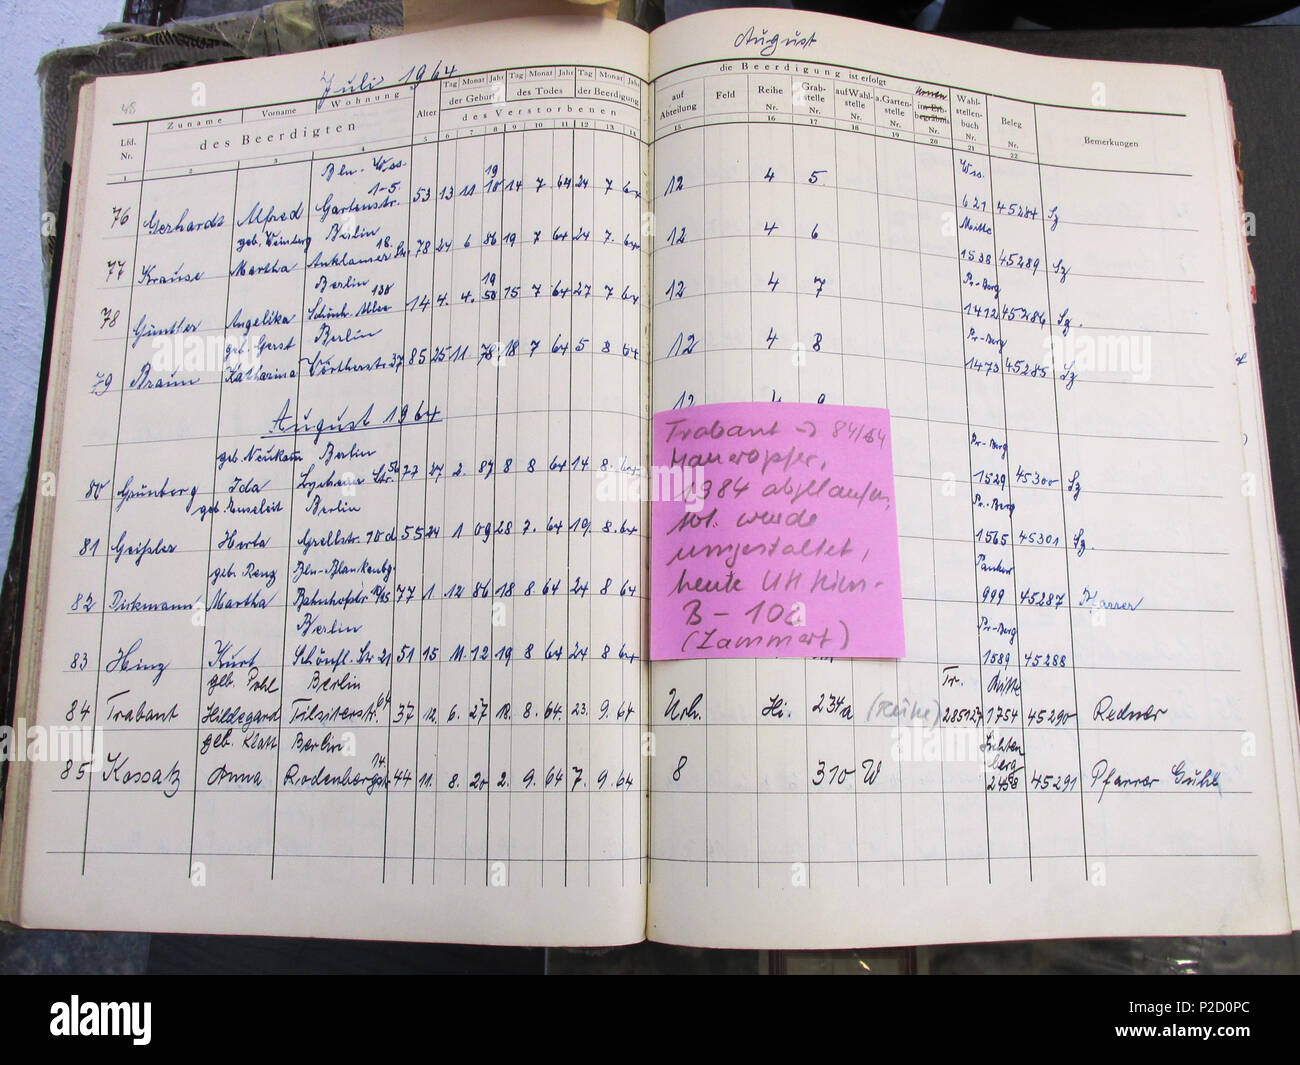 Juli 1964
August
48
Lfd. Nr.
Zuname
Vorname
Wohnung
des Beerdigten
Alter
Tag Monat Jahr
der Geburt
Tag Monat Jahr
des Todes
Tag Monat Jahr
der Beerdigung
des Verstorbenen
die Beerdigung ist erfolgt
auf Abteilung
Feld
Reihe Nr.
Grabstelle Nr.
auf Wahlstelle Nr.
a. Gartenstelle Nr.
im Erbbegräbnis Nr.
Wahlstellenbuch Nr.
Beleg Nr.
Bemerkungen
1 2 3 4 5 6 7 8 9 10 11 12 13 14 15 16 17 18 19 20 21 22
Bln. Wss. 1-5.
76 Gerhardt Alfred Gartenstr. 53 13 11 19 10 14 7 64 24 7 64 12 4 5 Wss. 621 45284 Sz
geb. Weinberg Berlin 18.
77 Krause Martha Anklamer Str. 78 24 6 86 19 7 64 24 7. 64 12 4 6 Mitte 1538 45289 Sz
Berlin 130
78 Günther Angelika Schönh. Allee 14 4. 4. 19 50 15 7 64 27 7 64 12 4 7 Pr-Berg 1412 45286 Sz.
geb. Gerst Berlin
79 Braun Katharina Wörtherstr. 37 85 25 11. 78 18 7 64 5 8 64 12 4 8 Pr-Berg 1473 45285 Sz
August 1964
12 4 9
geb. Neukam Berlin
80 Grünberg Ida Lychener Str. 56 77 27 2. 87 8 8 64 14 8. 64 Pr-Berg 1529 45300 Sz
geb. Enseleit Berlin
81 Geißler Herta Grellstr. 70d 55 24 1 09 28 7. 64 19. 8. 64 Pr-Berg 1565 45301 Sz.
geb. Renz Bln-Blankenbg.
82 Dirkmann Martha Bahnhofstr. 77 1 12 86 18 8. 64 24 8 64 Pankow 999 45287 Pfarrer
Berlin
83 Hinz Kurt Schönfl. Str 21 51 15 11. 12 19 8 64 24 8 64 Pr-Berg 1589 45288
geb. Pohl Berlin
84 Trabant Hildegard Tilsiterstr. 64 37 12. 6. 27 18. 8. 64. 23. 9. 64 Urh. Hi. 234a (Reihe) Tr. 285127 Mitte 1754 45290 Redner
geb. Klatt Berlin
85 Kossatz Anna Rodenbergstr. 14. 44 11. 8. 20 2. 9. 64 7. 9. 64 8 310 W Lichtenberg 2458 45291 Pfarrer Guhl
Trabant → 84/64
Maueropfer,
1984 abgelaufen,
wurde
umgestaltet,
heute UH Hin-
B - 102
(Lammert)
alamy
a
alamy stock photo
Image ID: P2D0PC
www.alamy.com